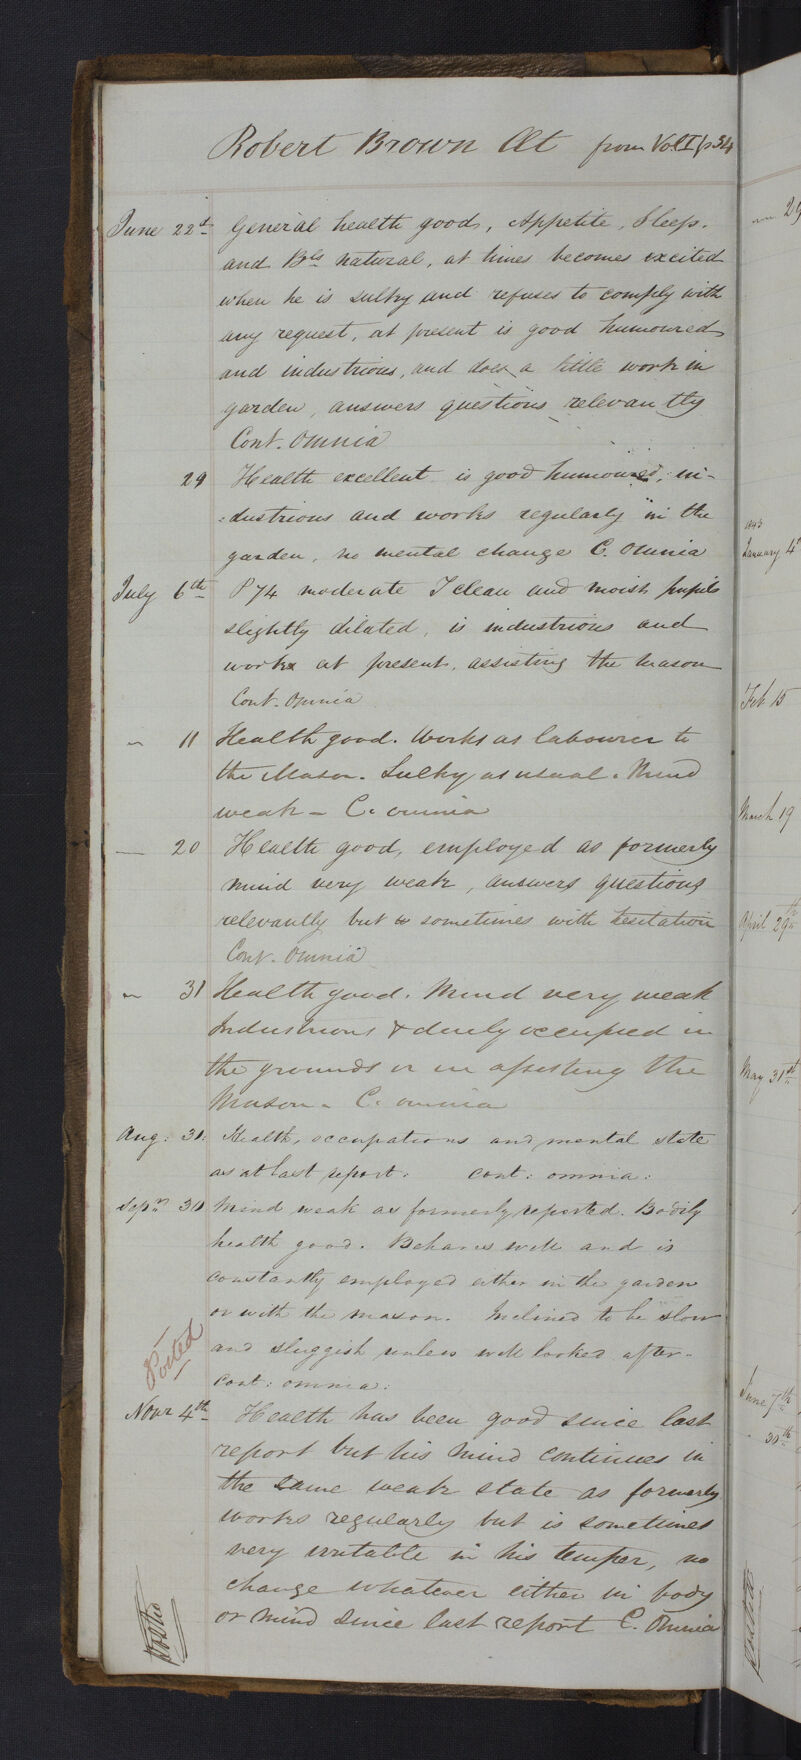 Robert Brown Æt from Vol I p 34
June 22d General health good, Appetite, Sleep.
and Bls natural, at times becomes excited
when he is sulky and refuses to comply with
any request, at present is good humoured
and industrious, and does a little work in
garden, answers questions relevantly
Cont. Omnia
29 Health excellent is good humoured, in-
=dustrious and works regularly in the
garden, no mental change C. Omnia
July 6th P 74 moderate T clean and moist pupils
slightly dilated, is industrious and
works at present, assisting the mason
Cont. Omnia
" 11 Health good. Works as labourer to
the Mason. Sulky as usual. Mind
weak – C. omnia
— 20 Health good, employed as formerly
mind very weak, answers questions
relevantly but sometimes with hesitation
Cont. Omnia
" 31 Health good. Mind very weak
Industrious & duely occupied in
the grounds or in assisting the
Mason – C. omnia
Aug: 30: Health, occupations and mental state
as at last report. cont: omnia:
Sepr 30 Mind weak as formerly reported. Bodily
health good. Behaves well and is
constantly employed either in the garden
or with the mason. Inclined to be slow
Posted
and sluggish unless well looked after.
cont: omnia:
Novr 4th Health has been good since last
report but his mind continues in
the same weak state as formerly
works regularly but is sometimes
very irritable in his temper, no
change whatever either in body
or mind since last report C. Omnia
Posted
29
1843
January 4th
Feb 15
March 19
April 29th
May 31st
June 7th
30th
Posted